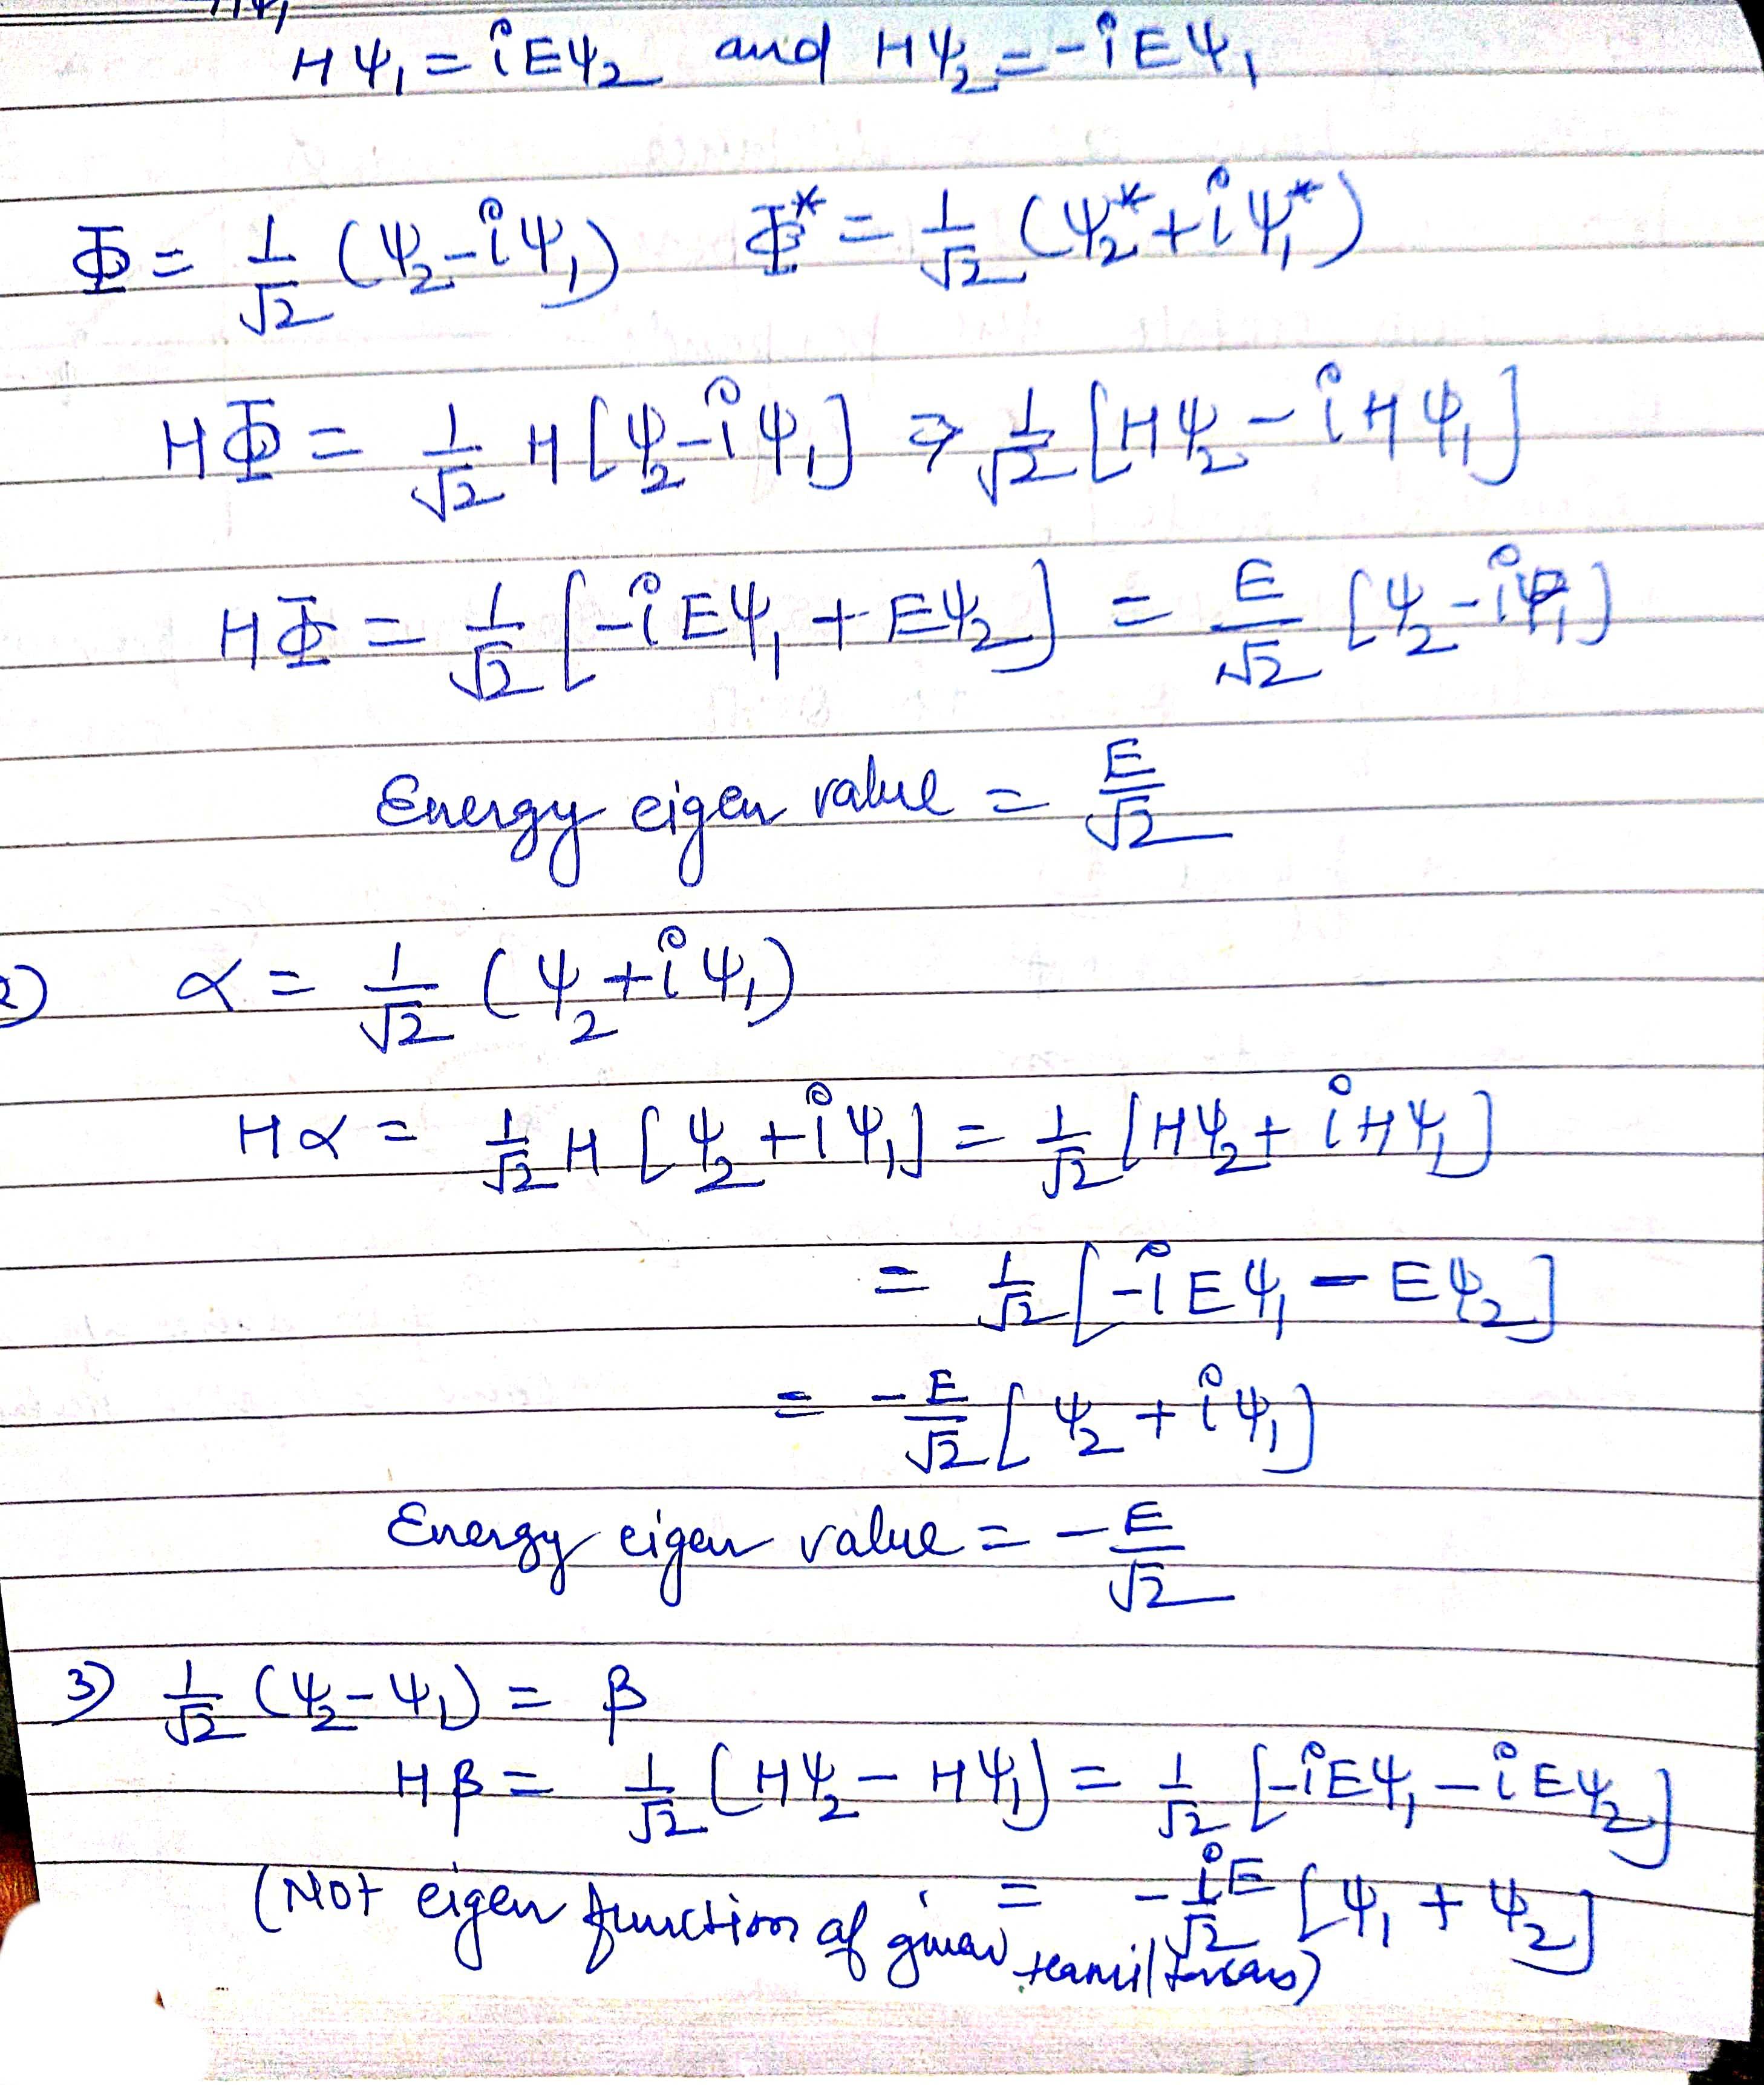 Hψ₁ = iEψ₂ and Hψ₂ = -iEψ₁
Φ = 1/√2 (ψ₂ - iψ₁) Φ* = 1/√2 (ψ₂* + iψ₁*)
HΦ = 1/√2 H[ψ₂ - iψ₁] ⇒ 1/√2 [Hψ₂ - iHψ₁]
HΦ = 1/√2 [-iEψ₁ + Eψ₂] = E/√2 [ψ₂ - iψ₁]
Energy eigen value = E/√2
2) α = 1/√2 (ψ₂ + iψ₁)
Hα = 1/√2 H [ψ₂ + iψ₁] = 1/√2 [Hψ₂ + iHψ₁]
= 1/√2 [-iEψ₁ - Eψ₂]
= -E/√2 [ψ₂ + iψ₁]
Energy eigen value = -E/√2
3) 1/√2 (ψ₂ - ψ₁) = β
Hβ = 1/√2 (Hψ₂ - Hψ₁) = 1/√2 [-iEψ₁ - iEψ₂]
= -iE/√2 [ψ₁ + ψ₂]
(Not eigen function of given